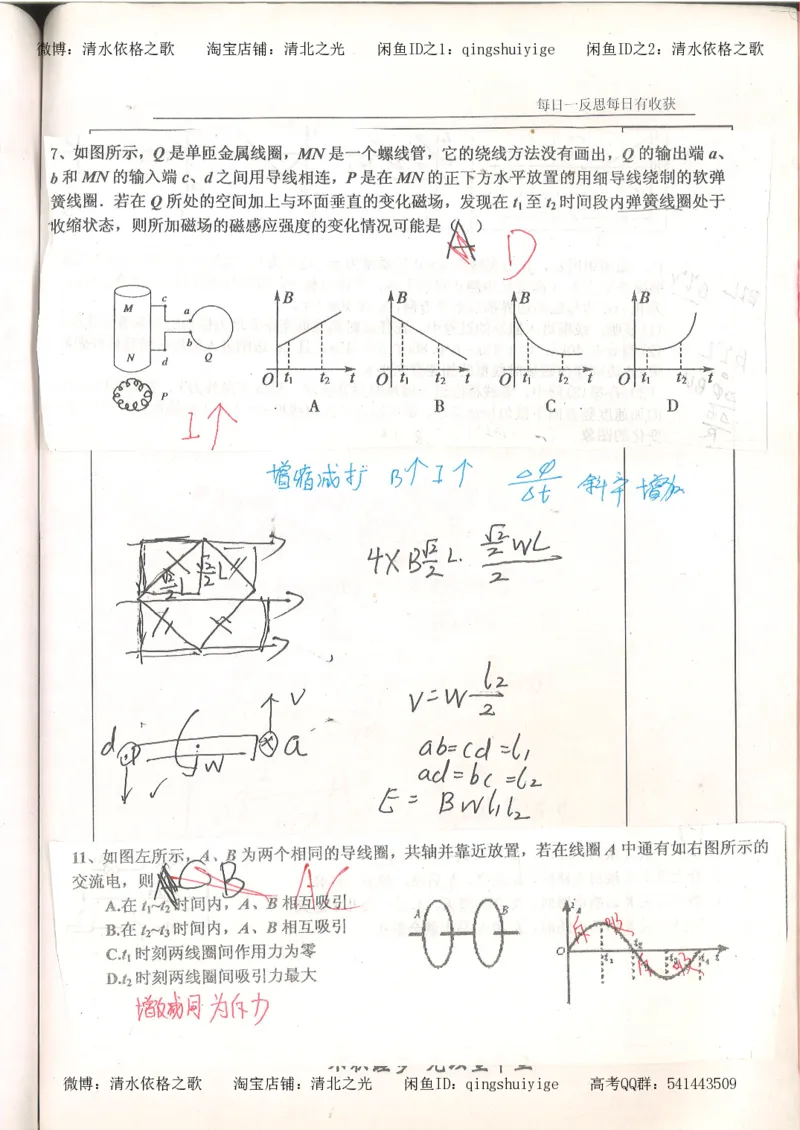 微博：清水依格之歌 淘宝店铺：清北之光 闲鱼ID之1：qingshuiyige 闲鱼ID之2：清水依格之歌
每日一反思每日有收获
7、如图所示，Q 是单匝金属线圈，MN 是一个螺线管，它的绕线方法没有画出，Q 的输出端 a、
b 和 MN 的输入端 c、d 之间用导线相连，P 是在 MN 的正下方水平放置的用细导线绕制的软弹
簧线圈．若在 Q 所处的空间加上与环面垂直的变化磁场，发现在 t₁ 至 t₂ 时间段内弹簧线圈处于
收缩状态，则所加磁场的磁感应强度的变化情况可能是（A）
D
M c a
N d b Q
P
B B B B
O t₁ t₂ t O t₁ t₂ t O t₁ t₂ t O t₁ t₂ t
A B C D
I↑
增缩减扩 B↑ I↑ ΔΦ/Δt 斜率增加
√2/2 L √2/2 L
4×B √2/2 L · (√2/2 WL)/2
V
d W a
V=W l₂/2
ab=cd=l₁
ad=bc=l₂
E= BWl₁l₂
11、如图左所示，A、B 为两个相同的导线圈，共轴并靠近放置，若在线圈 A 中通有如右图所示的
交流电，则
B AC
A.在 t₁~t₂ 时间内，A、B 相互吸引
B.在 t₂~t₃ 时间内，A、B 相互吸引
C.t₁ 时刻两线圈间作用力为零
D.t₂ 时刻两线圈间吸引力最大
A B
斥 吸 斥 吸
O t₁ t₂ t₃ t₄ t
微博：清水依格之歌 淘宝店铺：清北之光 闲鱼ID：qingshuiyige 高考QQ群：541443509